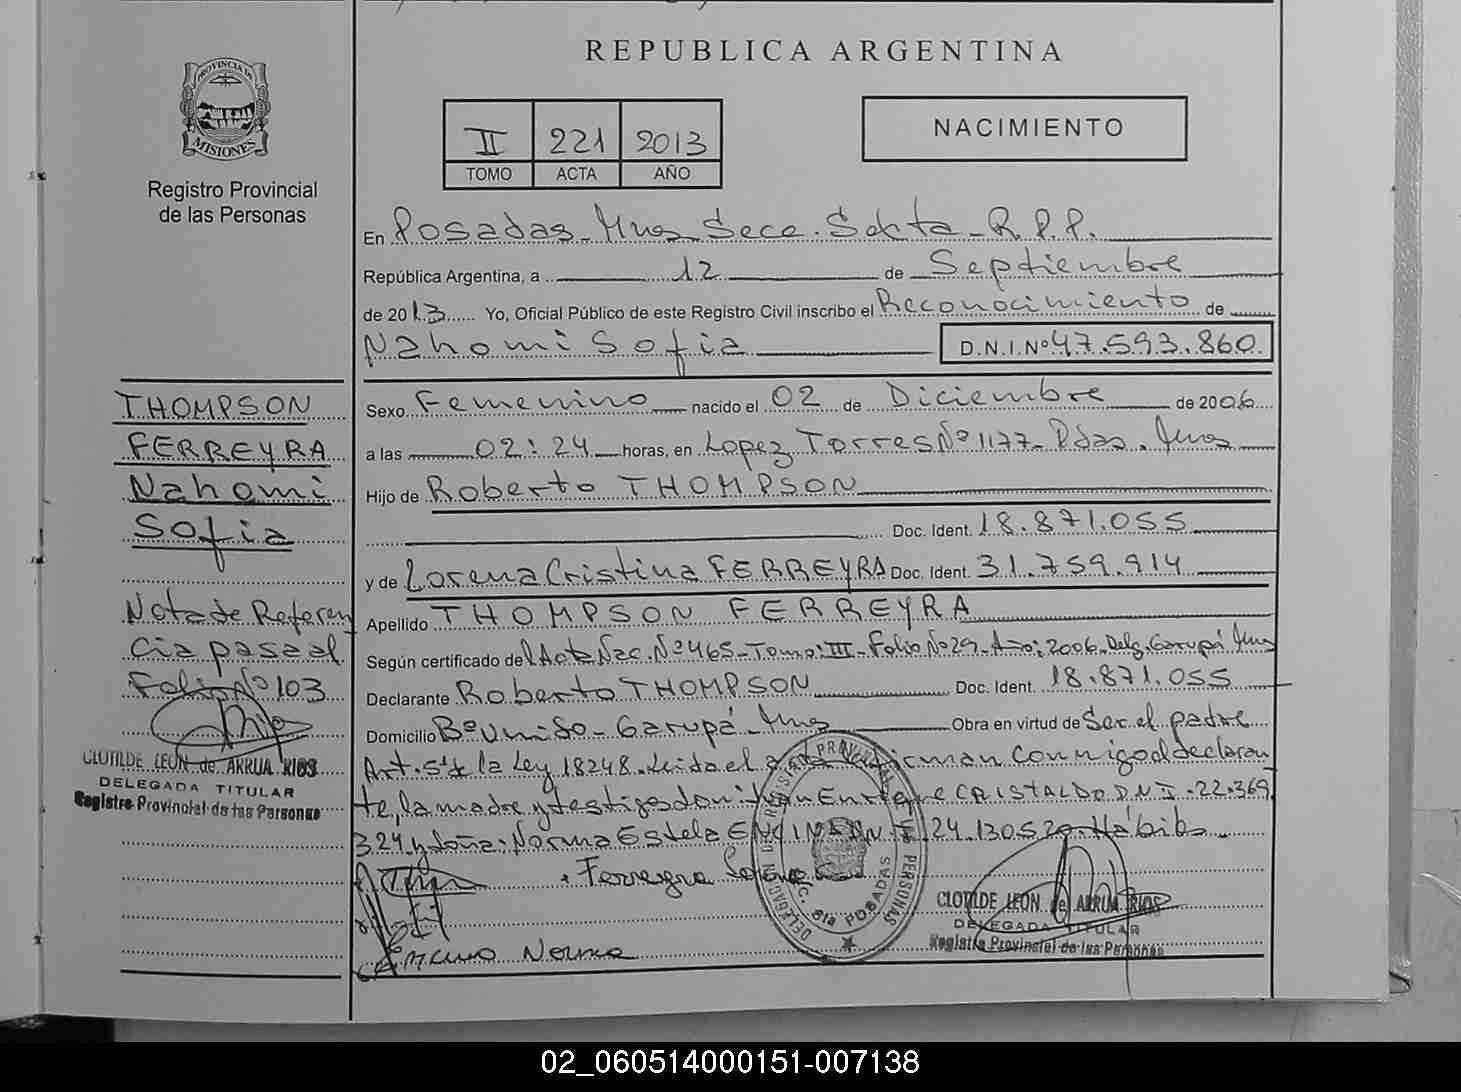 REPUBLICA ARGENTINA
PROVINCIA DE
MISIONES
Registro Provincial
de las Personas
II 221 2013
TOMO ACTA AÑO
NACIMIENTO
En Posadas Mnes Secc. Sexta - R.P.P.
República Argentina, a 12 de Septiembre
de 2013 Yo, Oficial Público de este Registro Civil inscribo el Reconocimiento de
Nahomi Sofia D.N.I.Nº 47.593.860
THOMPSON
FERREYRA
Nahomi
Sofia
Nota de Referen
cia pasa al
Folio Nº 103
CLOTILDE LEON de ARRUA RIOS
DELEGADA TITULAR
Registro Provincial de las Personas
Sexo Femenino nacido el 02 de Diciembre de 2006
a las 02:24 horas, en Lopez Torres Nº 1177 - Pdas. Mnes
Hijo de Roberto THOMPSON
Doc. Ident. 18.871.055
y de Lorena Cristina FERREYRA Doc. Ident. 31.759.914
Apellido THOMPSON FERREYRA
Según certificado del Acta Nac. Nº 465 - Tomo: III - Folio Nº 29 - Año: 2006 - Delg. Garupá Mnes
Declarante Roberto THOMPSON Doc. Ident. 18.871.055
Domicilio Bº Unido - Garupá Mnes Obra en virtud de Ser el padre
Art. 5º de la Ley 18248. Leida el acta firman conmigo el declaran
te, la madre y testigos don: Juan Enrique CRISTALDO D.N.I. 22.369
324 y doña: Norma Estela 24.130.520
Ferreyra Lorena
Norma
DELEGACION DEL REGISTRO PROVINCIAL DE LAS PERSONAS
SECC. 6ta POSADAS
CLOTILDE LEON de ARRUA RIOS
DELEGADA TITULAR
Registro Provincial de las Personas
02_060514000151-007138